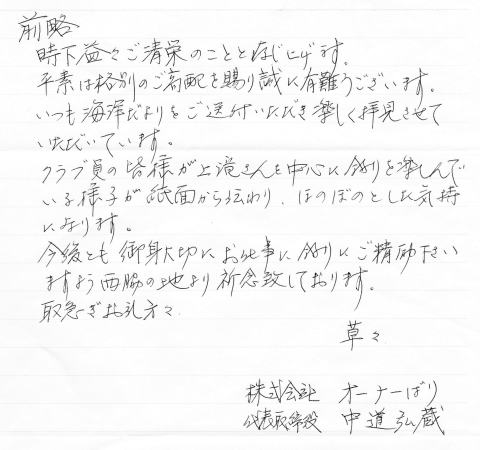 前略
時下益々ご清栄のことと存じ上げます。
平素は格別のご高配を賜り誠に有難うございます。
いつも海洋だよりをご送付いただき楽しく拝見させて
いただいています。
クラブ員の皆様が上滝さんを中心に釣りを楽しんで
いる様子が紙面から伝わり、ほのぼのとした気持
になります。
今後とも御身大切にお仕事に釣りにご精励下さい
ますよう西脇の地より祈念致しております。
取急ぎお礼方々
草々
株式会社 オーナーばり
代表取締役 中道弘蔵